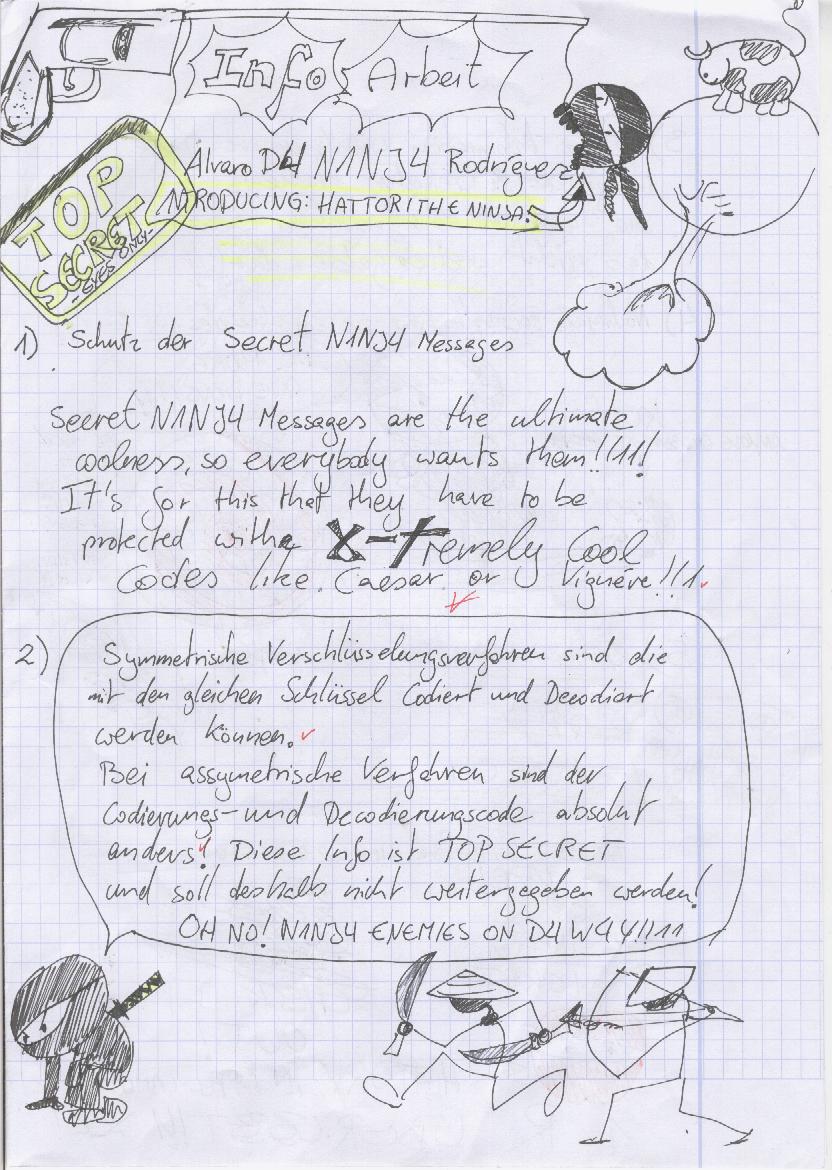 Info Arbeit
Alvaro D4 N1NJ4 Rodriguez
INTRODUCING: HATTORI THE NINJA!
TOP
SECRET
-EYES ONLY-
1) Schutz der Secret N1NJ4 Messages
Secret N1NJ4 Messages are the ultimate
coolness, so everybody wants them!!11!
It's for this that they have to be
protected with a X-tremely Cool
Codes like Caesar or Vignère!!1
2) Symmetrische Verschlüsselungsverfahren sind die
mit den gleichen Schlüssel Codiert und Decodiert
werden können.
Bei assymetrische Verfahren sind der
Codierungs- und Decodierungscode absolut
anders! Diese Info ist TOP SECRET
und soll deshalb nicht weitergegeben werden!
OH NO! N1NJ4 ENEMIES ON D4 W4Y!!11